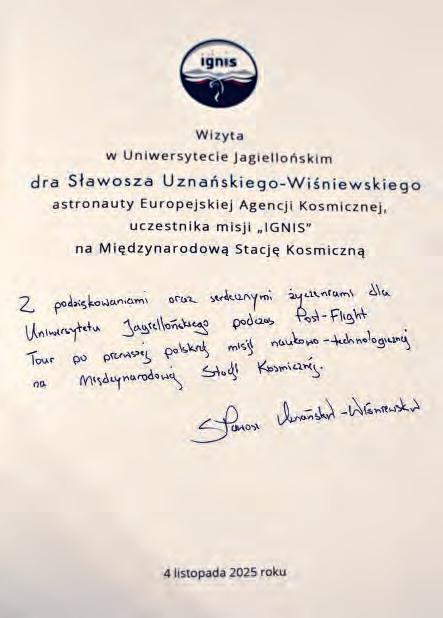 ignis
Wizyta
w Uniwersytecie Jagiellońskim
dra Sławosza Uznańskiego-Wiśniewskiego
astronauty Europejskiej Agencji Kosmicznej,
uczestnika misji „IGNIS”
na Międzynarodową Stację Kosmiczną
Z podziękowaniami oraz serdecznymi życzeniami dla
Uniwersytetu Jagiellońskiego podczas Post-Flight
Tour po pierwszej polskiej misji naukowo-technologicznej
na Międzynarodowej Stacji Kosmicznej.
Sławosz Uznański-Wiśniewski
4 listopada 2025 roku